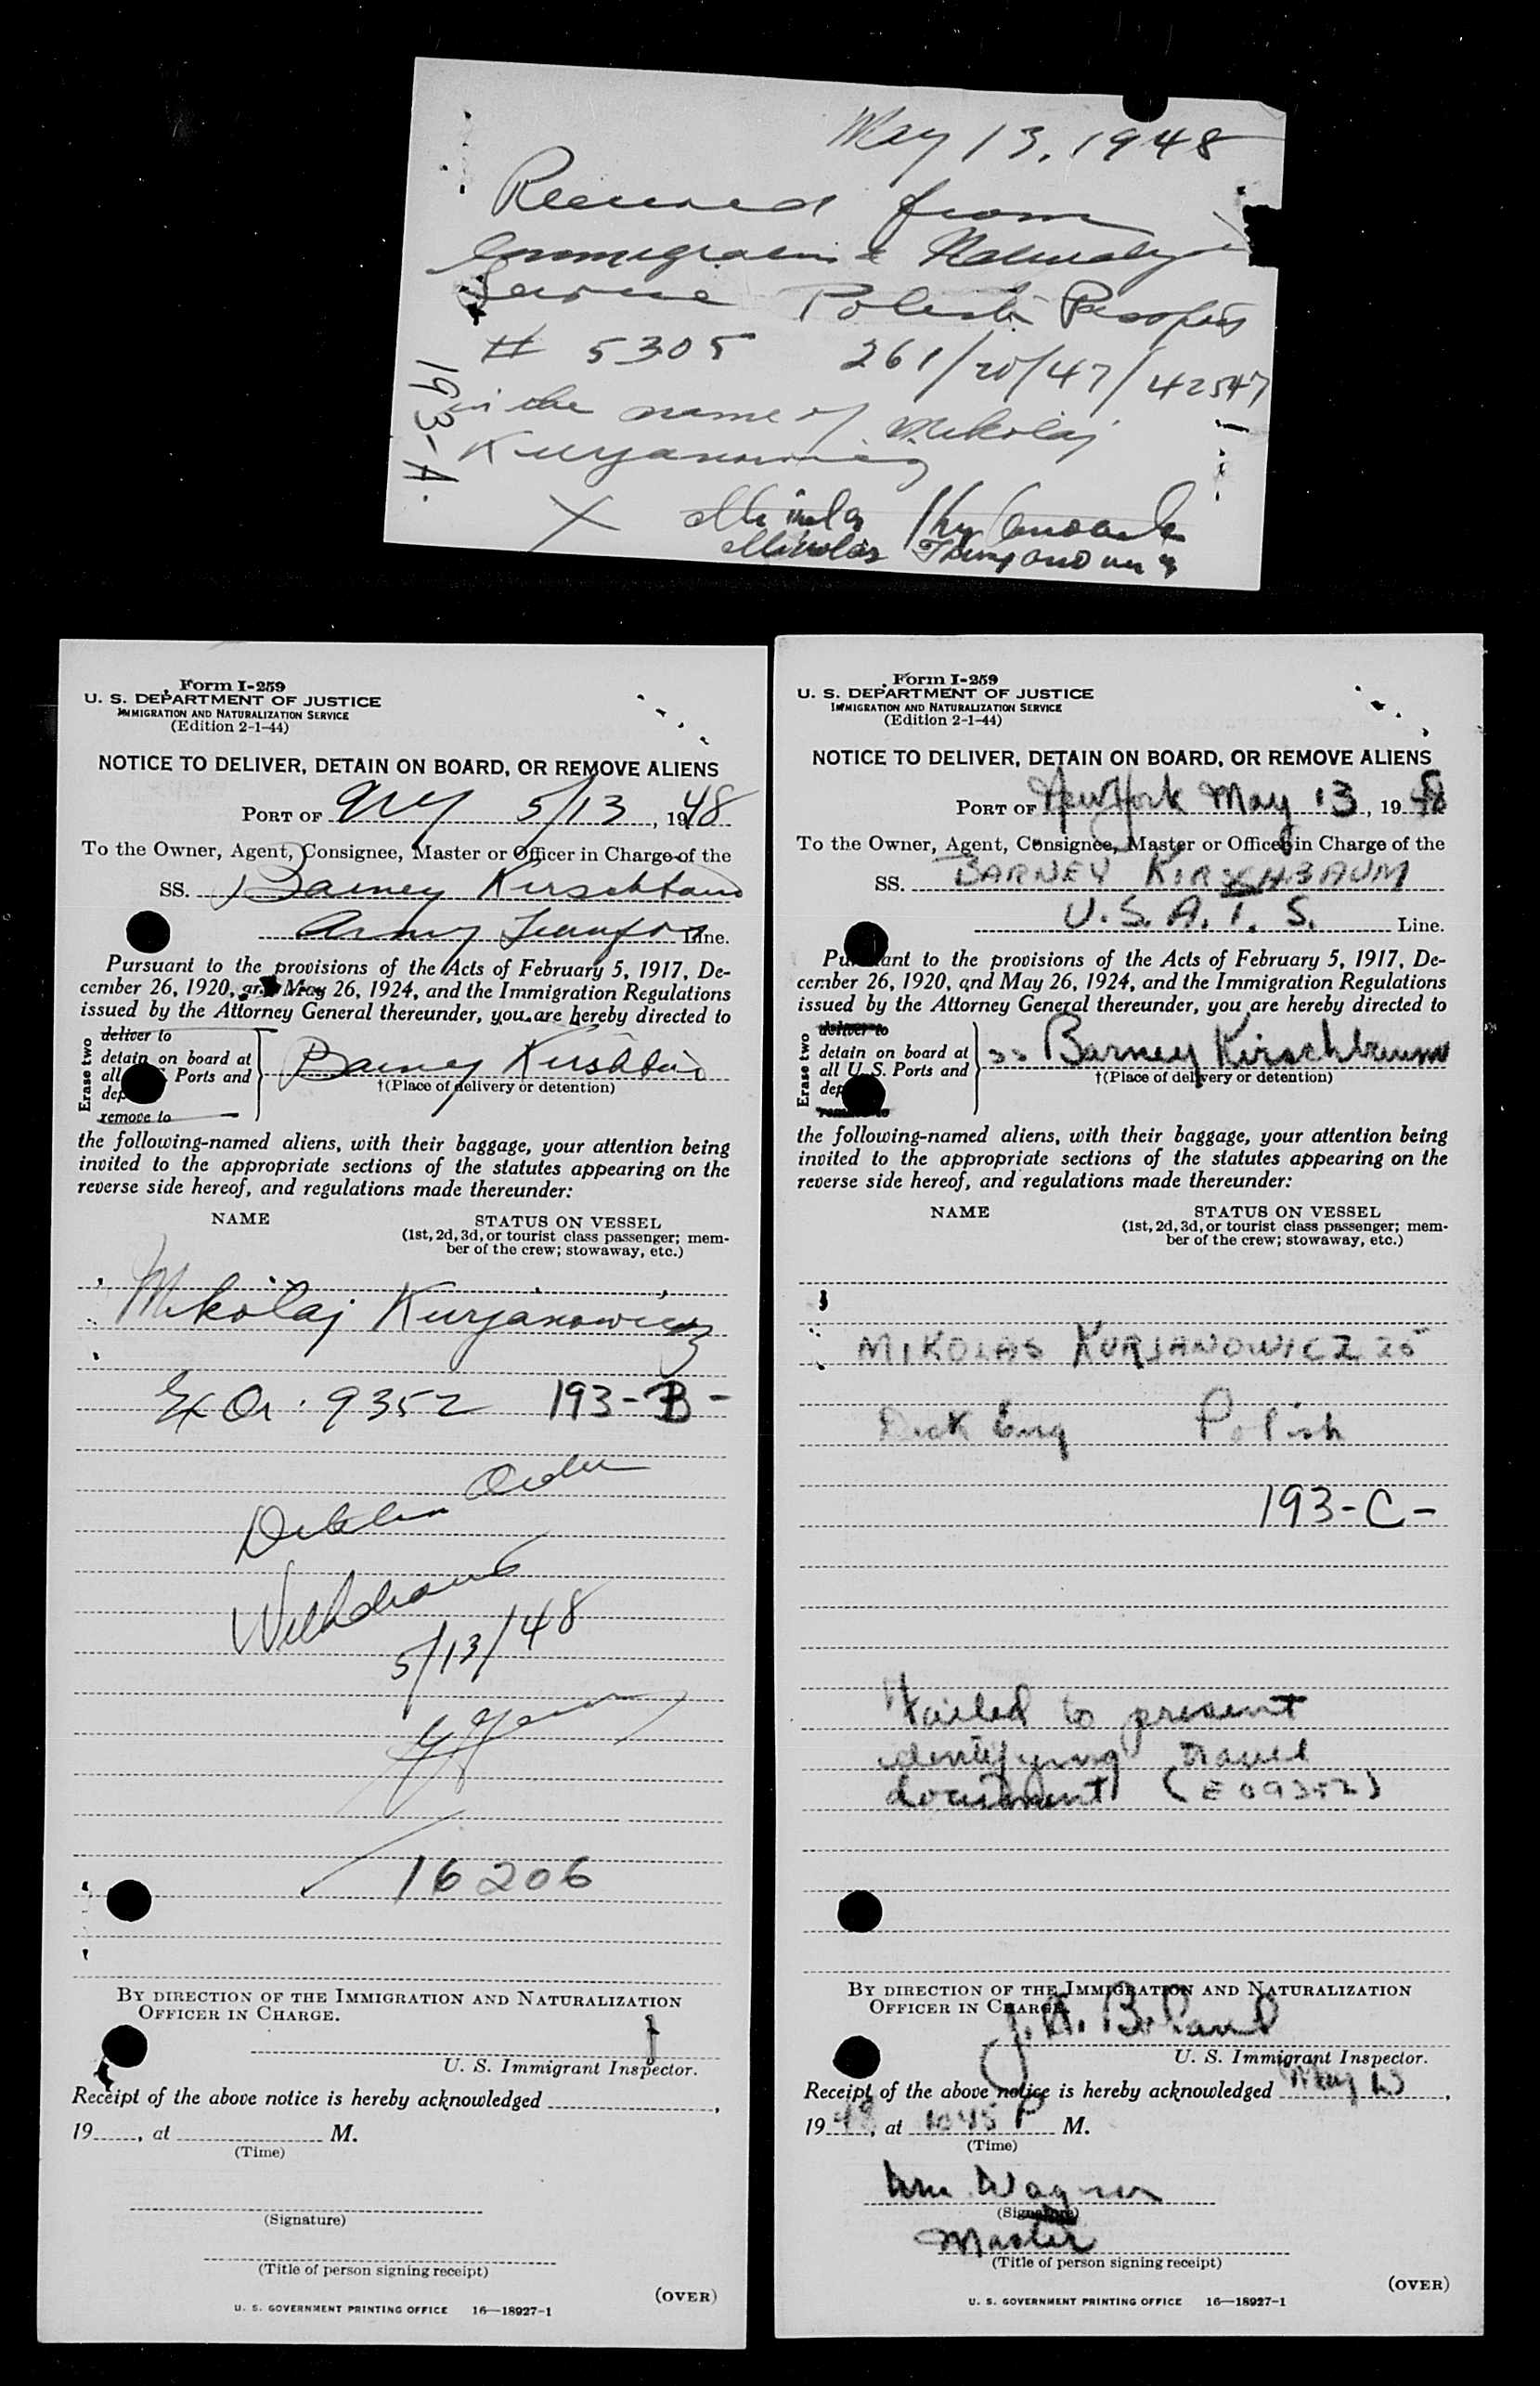 May 13, 1948
Received from
Immigration & Naturaliz
Service Polish Passport
# 5305 261/20/47/42547
in the name of Mikolaj
Kuryanowicz
X
193-A.
Form I-259
U. S. DEPARTMENT OF JUSTICE
IMMIGRATION AND NATURALIZATION SERVICE
(Edition 2-1-44)
NOTICE TO DELIVER, DETAIN ON BOARD, OR REMOVE ALIENS
PORT OF NY 5/13, 1948
To the Owner, Agent, Consignee, Master or Officer in Charge of the
SS. Barney Kirschbaum
Army Transport Line.
Pursuant to the provisions of the Acts of February 5, 1917, De-
cember 26, 1920, and May 26, 1924, and the Immigration Regulations
issued by the Attorney General thereunder, you are hereby directed to
Erase two
deliver to
detain on board at
all U. S. Ports and
dep
remove to
Barney Kirshbau
†(Place of delivery or detention)
the following-named aliens, with their baggage, your attention being
invited to the appropriate sections of the statutes appearing on the
reverse side hereof, and regulations made thereunder:
NAME STATUS ON VESSEL
(1st, 2d, 3d, or tourist class passenger; mem-
ber of the crew; stowaway, etc.)
Mikolaj Kurjanowicz
Ex Or. 9352 193-B-
Detain Order
Withdrawn
5/13/48
16206
BY DIRECTION OF THE IMMIGRATION AND NATURALIZATION
OFFICER IN CHARGE.
U. S. Immigrant Inspector.
Receipt of the above notice is hereby acknowledged ,
19 , at M.
(Time)
(Signature)
(Title of person signing receipt)
(OVER)
U. S. GOVERNMENT PRINTING OFFICE 16—18927-1
Form I-259
U. S. DEPARTMENT OF JUSTICE
IMMIGRATION AND NATURALIZATION SERVICE
(Edition 2-1-44)
NOTICE TO DELIVER, DETAIN ON BOARD, OR REMOVE ALIENS
PORT OF New York May 13, 1948
To the Owner, Agent, Consignee, Master or Officer in Charge of the
SS. BARNEY KIRSCHBAUM
U.S.A.T.S. Line.
Pursuant to the provisions of the Acts of February 5, 1917, De-
cember 26, 1920, and May 26, 1924, and the Immigration Regulations
issued by the Attorney General thereunder, you are hereby directed to
Erase two
deliver to
detain on board at
all U. S. Ports and
dep
remove to
SS Barney Kirschbaum
†(Place of delivery or detention)
the following-named aliens, with their baggage, your attention being
invited to the appropriate sections of the statutes appearing on the
reverse side hereof, and regulations made thereunder:
NAME STATUS ON VESSEL
(1st, 2d, 3d, or tourist class passenger; mem-
ber of the crew; stowaway, etc.)
MIKOLAS KURJANOWICZ 25
Deck Eng Polish
193-C-
Failed to present
identifying travel
document (EO9352)
BY DIRECTION OF THE IMMIGRATION AND NATURALIZATION
OFFICER IN CHARGE.
J. A. Boland
U. S. Immigrant Inspector.
Receipt of the above notice is hereby acknowledged May 13,
1948, at 1045 P M.
(Time)
Wm Wagner
(Signature)
Master
(Title of person signing receipt)
(OVER)
U. S. GOVERNMENT PRINTING OFFICE 16—18927-1